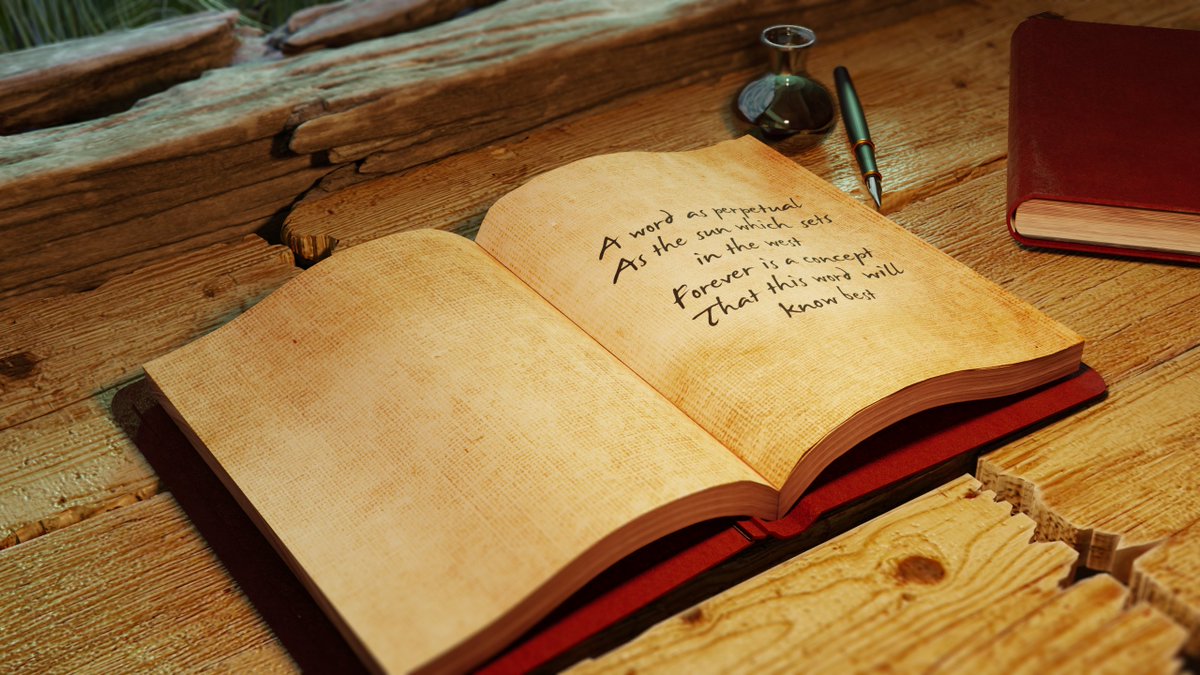 A word as perpetual
As the sun which sets
in the west
Forever is a concept
That this word will
know best